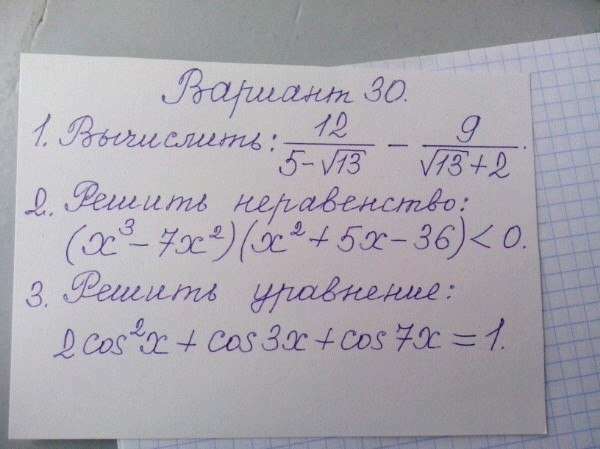 Вариант 30.
1. Вычислить: 12/(5-√13) - 9/(√13+2).
2. Решить неравенство:
(x³-7x²)(x²+5x-36)<0.
3. Решить уравнение:
2cos²x+cos3x+cos7x=1.